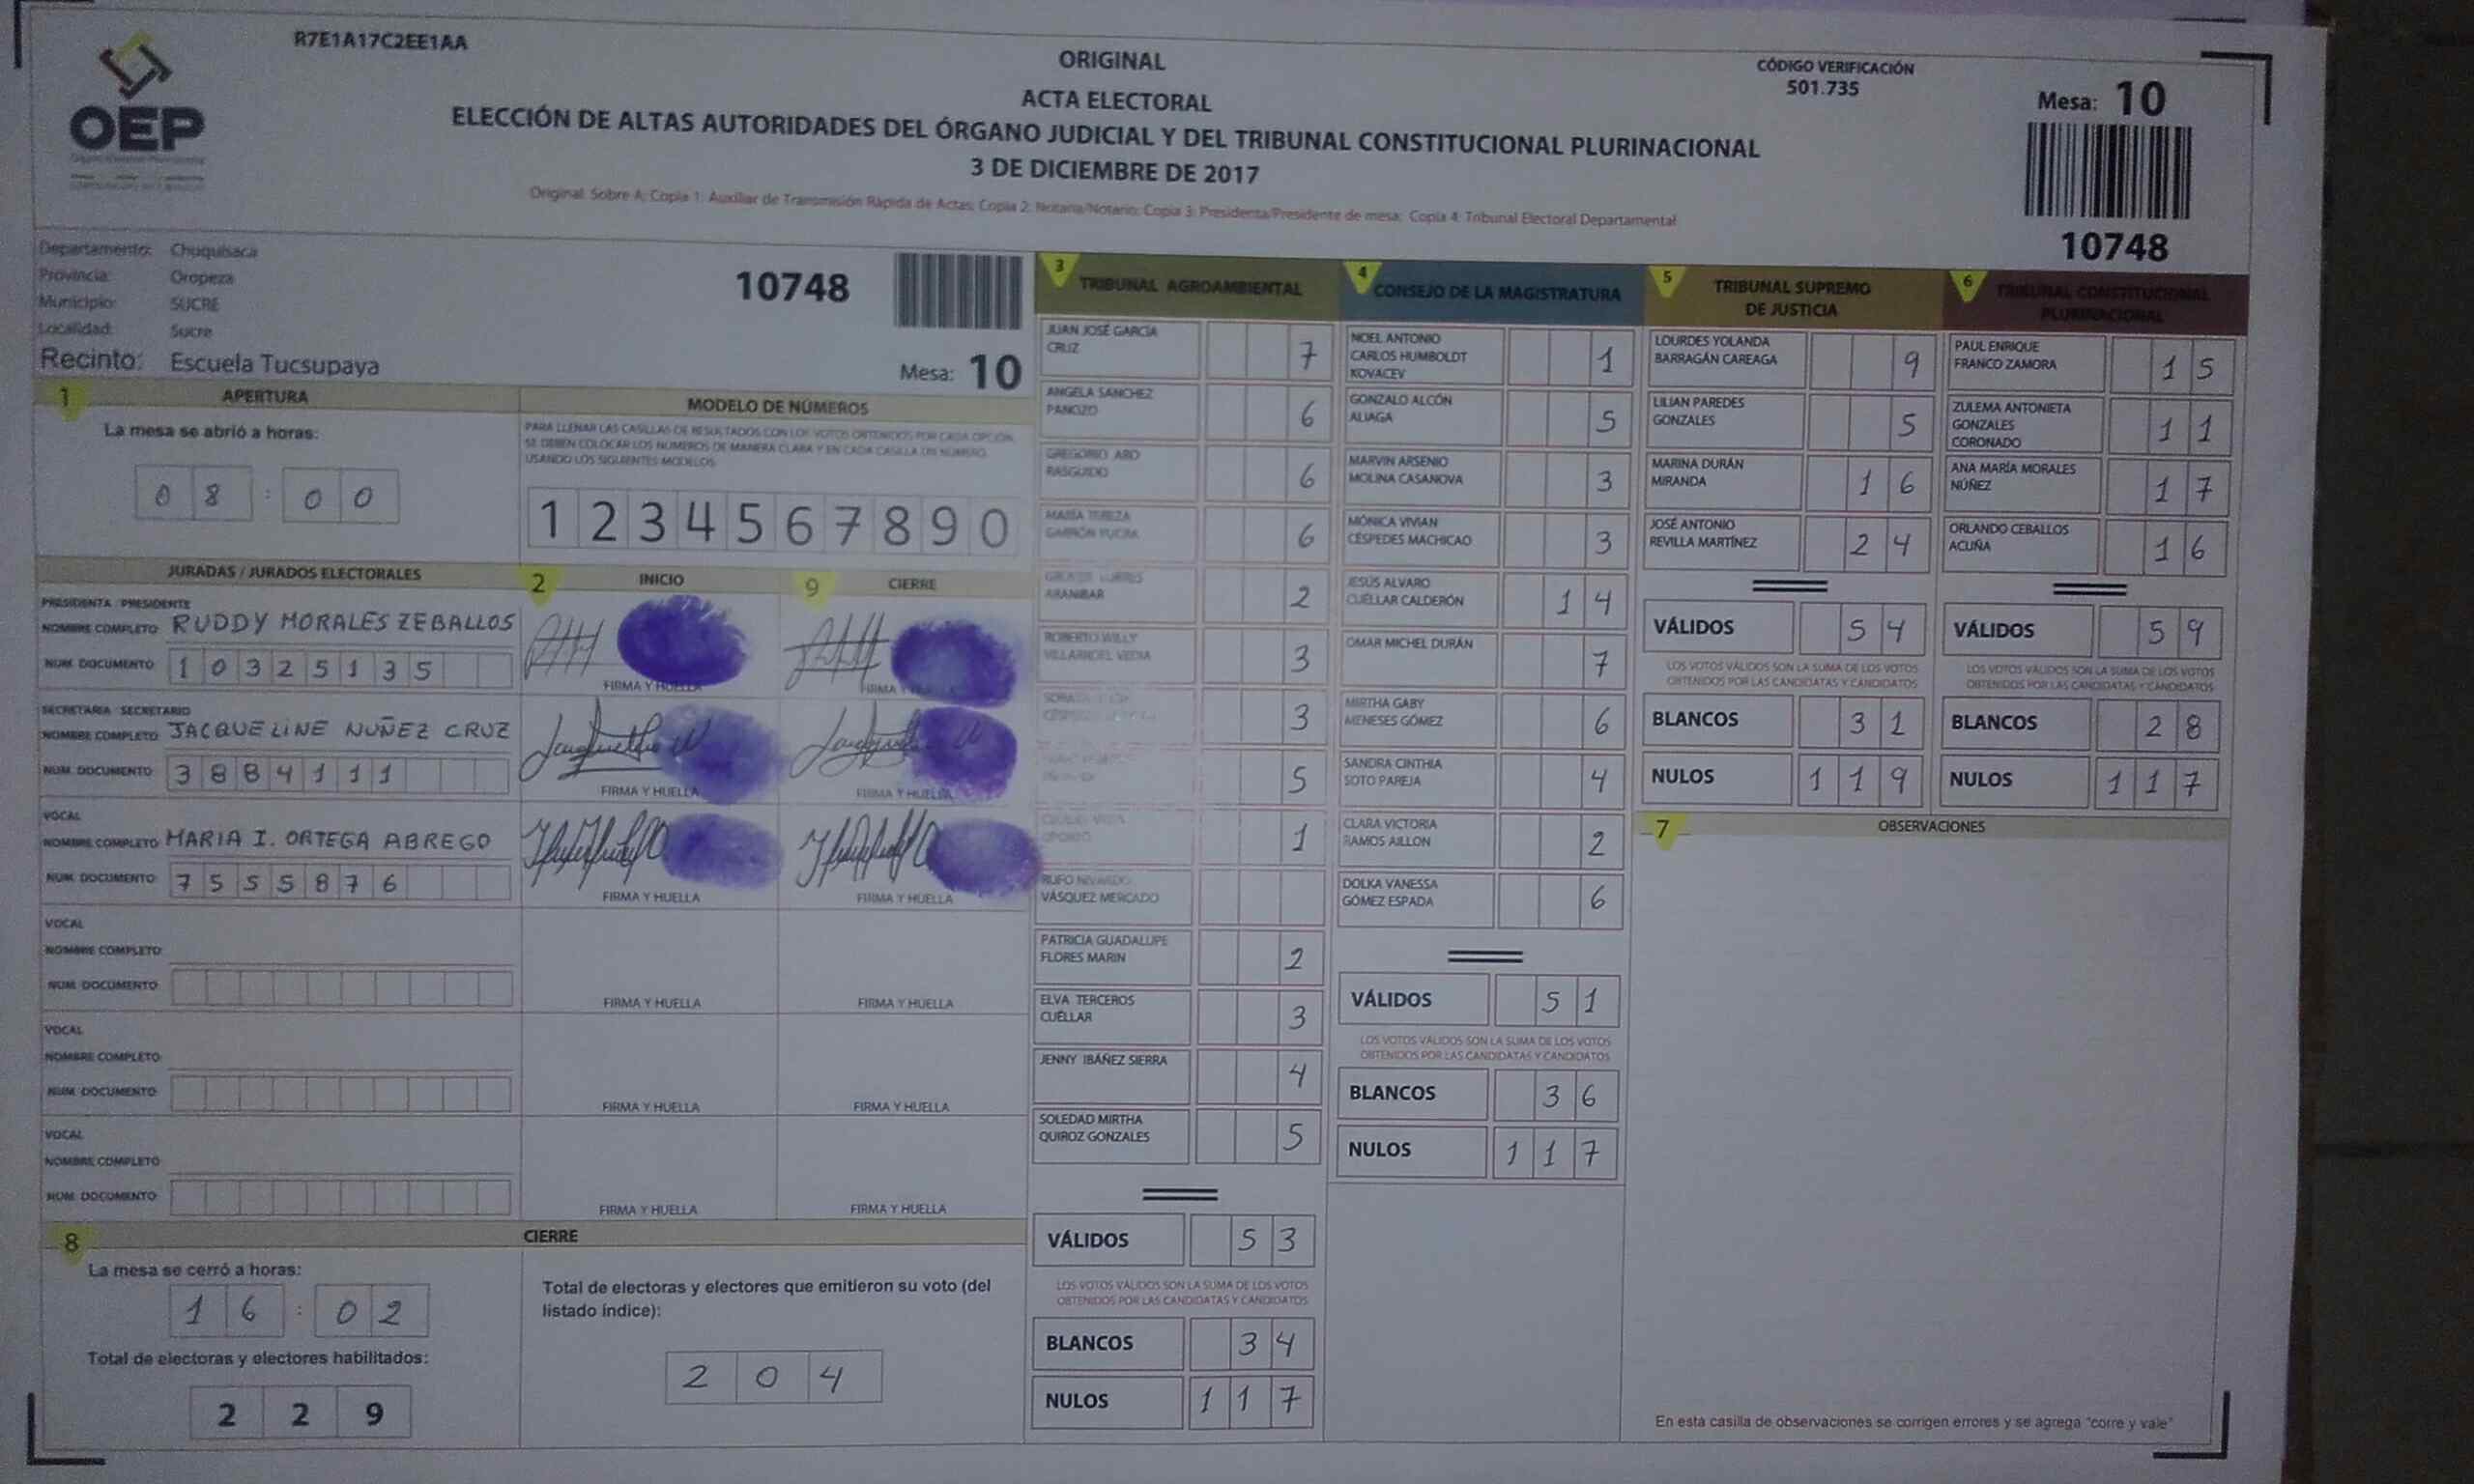 R7E1A17C2EE1AA
OEP
ORIGINAL
ACTA ELECTORAL
ELECCIÓN DE ALTAS AUTORIDADES DEL ÓRGANO JUDICIAL Y DEL TRIBUNAL CONSTITUCIONAL PLURINACIONAL
3 DE DICIEMBRE DE 2017
Original: Sobre A; Copia 1: Auxiliar de Transmisión Rápida de Actas; Copia 2: Notaria/Notario; Copia 3: Presidenta/Presidente de mesa; Copia 4: Tribunal Electoral Departamental
CÓDIGO VERIFICACIÓN
501.735
Mesa: 10
10748
Departamento: Chuquisaca
Provincia: Oropeza
Municipio: SUCRE
Localidad: Sucre
Recinto: Escuela Tucsupaya
10748
Mesa: 10
1 APERTURA
La mesa se abrió a horas:
08:00
MODELO DE NÚMEROS
PARA LLENAR LAS CASILLAS DE RESULTADOS CON LOS VOTOS OBTENIDOS POR CADA OPCIÓN
SE DEBEN COLOCAR LOS NÚMEROS DE MANERA CLARA Y EN CADA CASILLA UN NÚMERO
USANDO LOS SIGUIENTES MODELOS
1 2 3 4 5 6 7 8 9 0
JURADAS / JURADOS ELECTORALES
2 INICIO
9 CIERRE
PRESIDENTA / PRESIDENTE
NOMBRE COMPLETO RUDDY MORALES ZEBALLOS
NUM. DOCUMENTO 10325135
FIRMA Y HUELLA
FIRMA
SECRETARIA / SECRETARIO
NOMBRE COMPLETO JACQUELINE NUÑEZ CRUZ
NUM. DOCUMENTO 3884111
FIRMA Y HUELLA
FIRMA Y HUELLA
VOCAL
NOMBRE COMPLETO MARIA I. ORTEGA ABREGO
NUM. DOCUMENTO 7555876
FIRMA Y HUELLA
FIRMA Y HUELLA
VOCAL
NOMBRE COMPLETO
NUM. DOCUMENTO
FIRMA Y HUELLA
FIRMA Y HUELLA
VOCAL
NOMBRE COMPLETO
NUM. DOCUMENTO
FIRMA Y HUELLA
FIRMA Y HUELLA
VOCAL
NOMBRE COMPLETO
NUM. DOCUMENTO
FIRMA Y HUELLA
FIRMA Y HUELLA
8 CIERRE
La mesa se cerró a horas:
16:02
Total de electoras y electores habilitados:
229
Total de electoras y electores que emitieron su voto (del
listado índice):
204
3 TRIBUNAL AGROAMBIENTAL
JUAN JOSÉ GARCÍA
CRUZ 7
ANGELA SANCHEZ
PANOZO 6
GREGORIO ARO
RASGUIDO 6
MARIA TEREZA
GARRÓN YUCRA 6
ARANIBAR 2
ROBERTO WILLY
VILLARROEL VEDIA 3
3
5
1
RUFO NIVARDO
VÁSQUEZ MERCADO
PATRICIA GUADALUPE
FLORES MARIN 2
ELVA TERCEROS
CUÉLLAR 3
JENNY IBÁÑEZ SIERRA 4
SOLEDAD MIRTHA
QUIROZ GONZALES 5
VÁLIDOS 53
LOS VOTOS VÁLIDOS SON LA SUMA DE LOS VOTOS
OBTENIDOS POR LAS CANDIDATAS Y CANDIDATOS
BLANCOS 34
NULOS 117
4 CONSEJO DE LA MAGISTRATURA
NOEL ANTONIO
CARLOS HUMBOLDT
KOVACEV 1
GONZALO ALCÓN
ALIAGA 5
MARVIN ARSENIO
MOLINA CASANOVA 3
MÓNICA VIVIAN
CÉSPEDES MACHICAO 3
JESÚS ALVARO
CUÉLLAR CALDERÓN 14
OMAR MICHEL DURÁN 7
MIRTHA GABY
MENESES GÓMEZ 6
SANDRA CINTHIA
SOTO PAREJA 4
CLARA VICTORIA
RAMOS AILLON 2
DOLKA VANESSA
GÓMEZ ESPADA 6
VÁLIDOS 51
LOS VOTOS VÁLIDOS SON LA SUMA DE LOS VOTOS
OBTENIDOS POR LAS CANDIDATAS Y CANDIDATOS
BLANCOS 36
NULOS 117
5 TRIBUNAL SUPREMO
DE JUSTICIA
LOURDES YOLANDA
BARRAGÁN CAREAGA 9
LILIAN PAREDES
GONZALES 5
MARINA DURÁN
MIRANDA 16
JOSÉ ANTONIO
REVILLA MARTÍNEZ 24
VÁLIDOS 54
LOS VOTOS VÁLIDOS SON LA SUMA DE LOS VOTOS
OBTENIDOS POR LAS CANDIDATAS Y CANDIDATOS
BLANCOS 31
NULOS 119
6 TRIBUNAL CONSTITUCIONAL
PLURINACIONAL
PAUL ENRIQUE
FRANCO ZAMORA 15
ZULEMA ANTONIETA
GONZALES
CORONADO 11
ANA MARÍA MORALES
NÚÑEZ 17
ORLANDO CEBALLOS
ACUÑA 16
VÁLIDOS 59
LOS VOTOS VÁLIDOS SON LA SUMA DE LOS VOTOS
OBTENIDOS POR LAS CANDIDATAS Y CANDIDATOS
BLANCOS 28
NULOS 117
7 OBSERVACIONES
En esta casilla de observaciones se corrigen errores y se agrega "corre y vale"